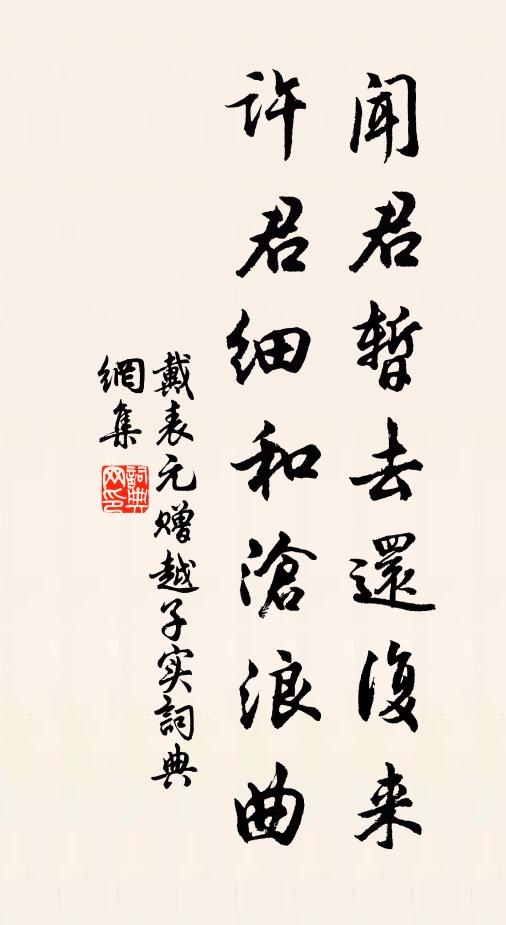 闻君暫去還復来
许君细和滄浪曲
戴表元赠越子实詞典
網集
詞典網印